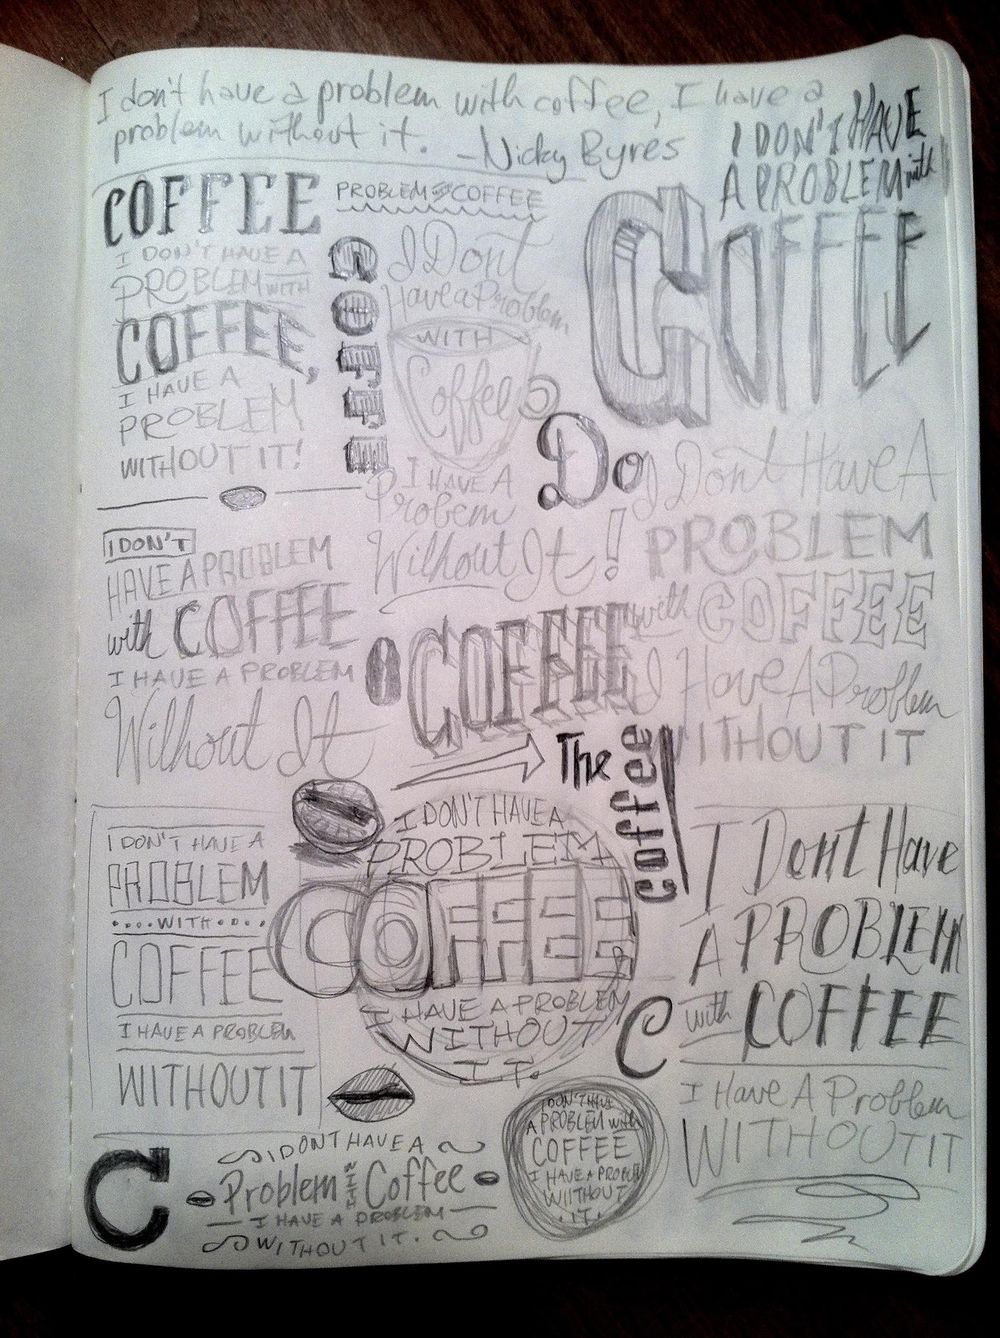 I don't have a problem with coffee, I have a
problem without it. -Nicky Byres
COFFEE
I DON'T HAVE A
PROBLEM WITH
COFFEE,
I HAVE A
PROBLEM
WITHOUT IT!
PROBLEM COFFEE
COFFEE
I Dont
Have a Problem
WITH
Coffee
I HAVE A
Probem
Without It!
I DON'T HAVE
A PROBLEM with
COFFEE
Do
I Dont Have A
PROBLEM
with COFFEE
I Have A Problem
WITHOUT IT
I DON'T
HAVE A PROBLEM
with COFFEE
I HAVE A PROBLEM
Without It
COFFEE
The
coffee
I DON'T HAVE A
PROBLEM
WITH
COFFEE
I HAVE A PROBLEM
WITHOUT IT
I DON'T HAVE A
PROBLEM
COFFEE
I HAVE A PROBLEM
WITHOUT
IT.
I Dont Have
A PROBLEM
with COFFEE
I Have A Problem
WITHOUT IT
C
C
I DONT HAVE A
Problem WITH Coffee
I HAVE A PROBLEM
WITHOUT IT.
I DON'T HAVE
A PROBLEM with
COFFEE
I HAVE A PROBLEM
WIITHOUT
IT.